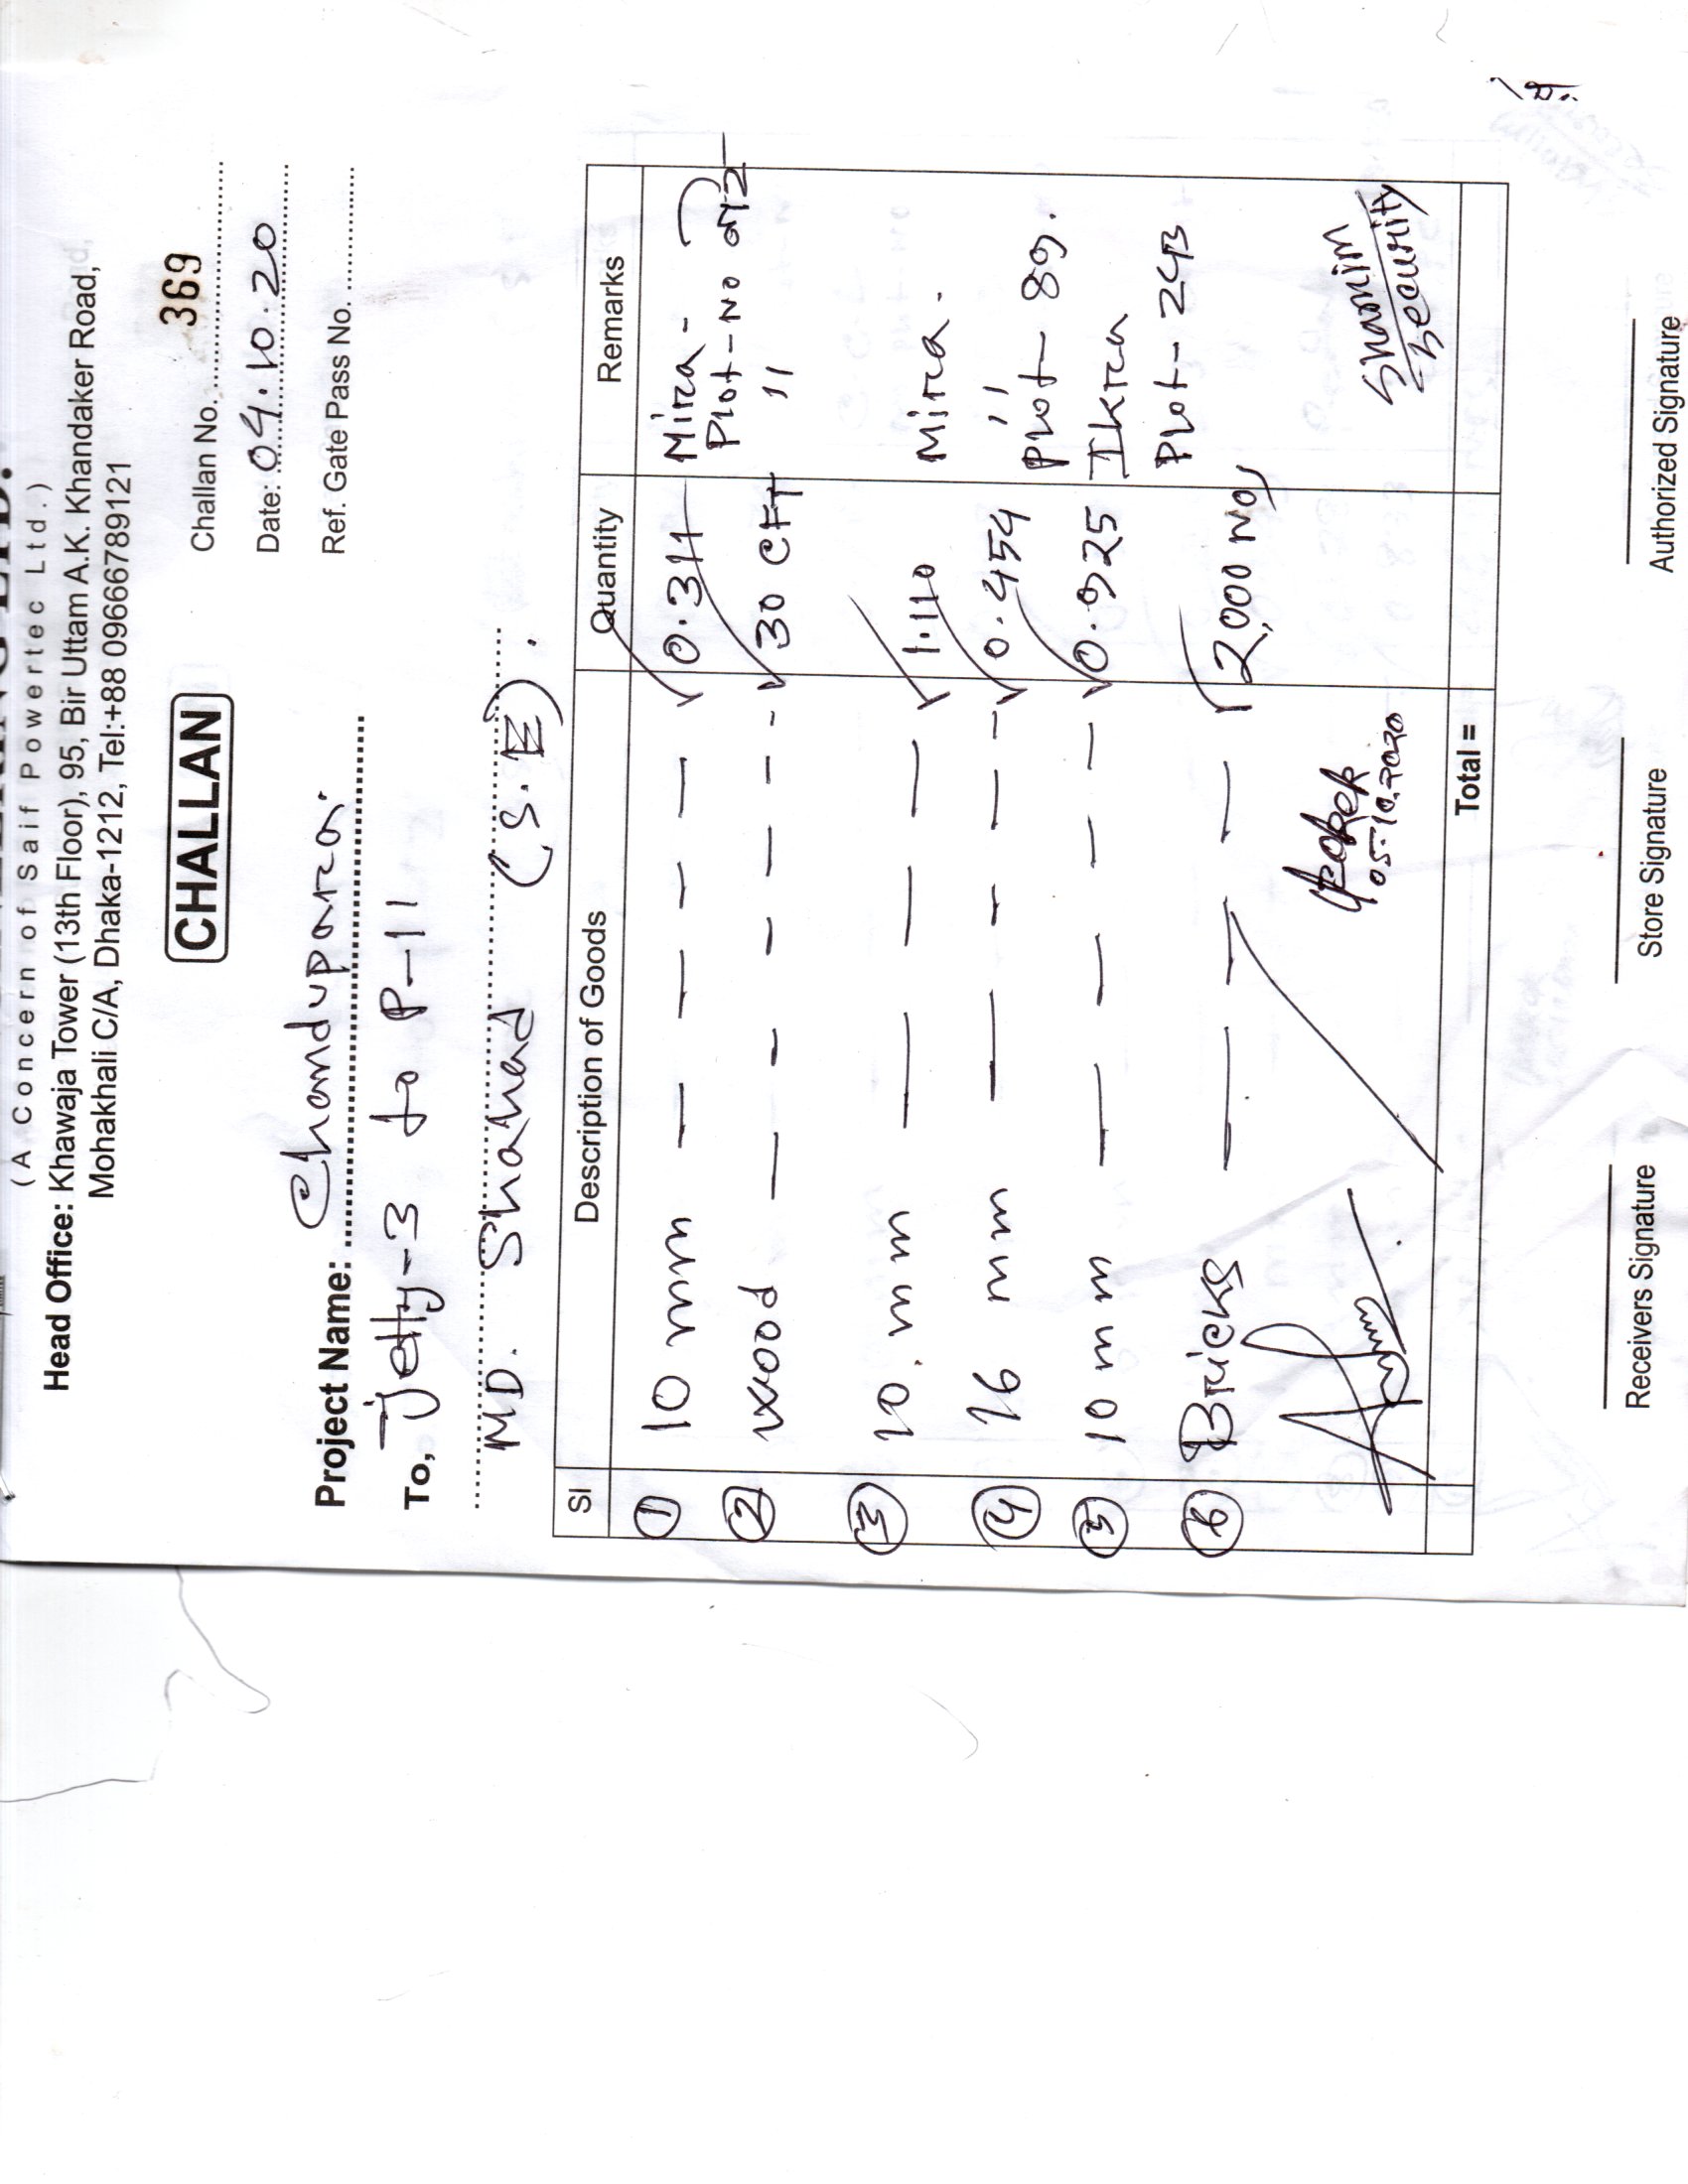 (A Concern of Saif Powertec Ltd.)
Head Office: Khawaja Tower (13th Floor), 95, Bir Uttam A.K. Khandaker Road,
Mohakhali C/A, Dhaka-1212, Tel:+88 09666789121
CHALLAN
Challan No. 369
Date: 04.10.20
Ref. Gate Pass No.
Project Name: Chandupara.
To, Jetty-3 to P-11
MD. Shahed (S.E).
Sl Description of Goods Quantity Remarks
1 10 mm 0.311 Mira -
Plot-No
2 wood 30 CFT "
3 10 mm 1.110 Mira.
4 16 mm 0.454 "
Plot- 89.
5 10 mm 0.925 Ikra
Plot- 243
6 Bricks 2,000 No
05.10.2020
Shamim
Security
Total =
Receivers Signature Store Signature Authorized Signature